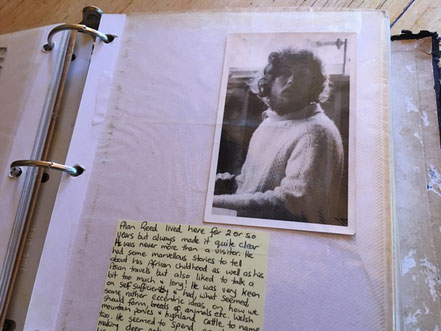 Alan Reed lived here for 2 or so
years but always made it quite clear
He was never more than a visitor. He
had some marvellous stories to tell
about his African childhood as well as his
travels but also liked to talk a
bit too much & long! He was very keen
on self sufficiency & had, what seemed,
some rather eccentric ideas, on how we
should farm, breeds of animals etc. Welsh
mountain ponies & highland cattle, to name
too. He seemed to spend
making